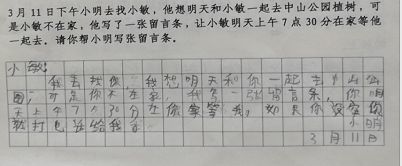 3月11日下午小明去找小敏，他想明天和小敏一起去中山公园植树，可
是小敏不在家，他写了一张留言条，让小敏明天上午7点30分在家等他
一起去。请你帮小明写张留言条。
小敏：
我去找你，我想明天和你一起去中山公
园，可是你不在家，我写一张留言条，你明
天上午7点30分在你家等我，如果你没空你
就打电话给我
小明
3月11日